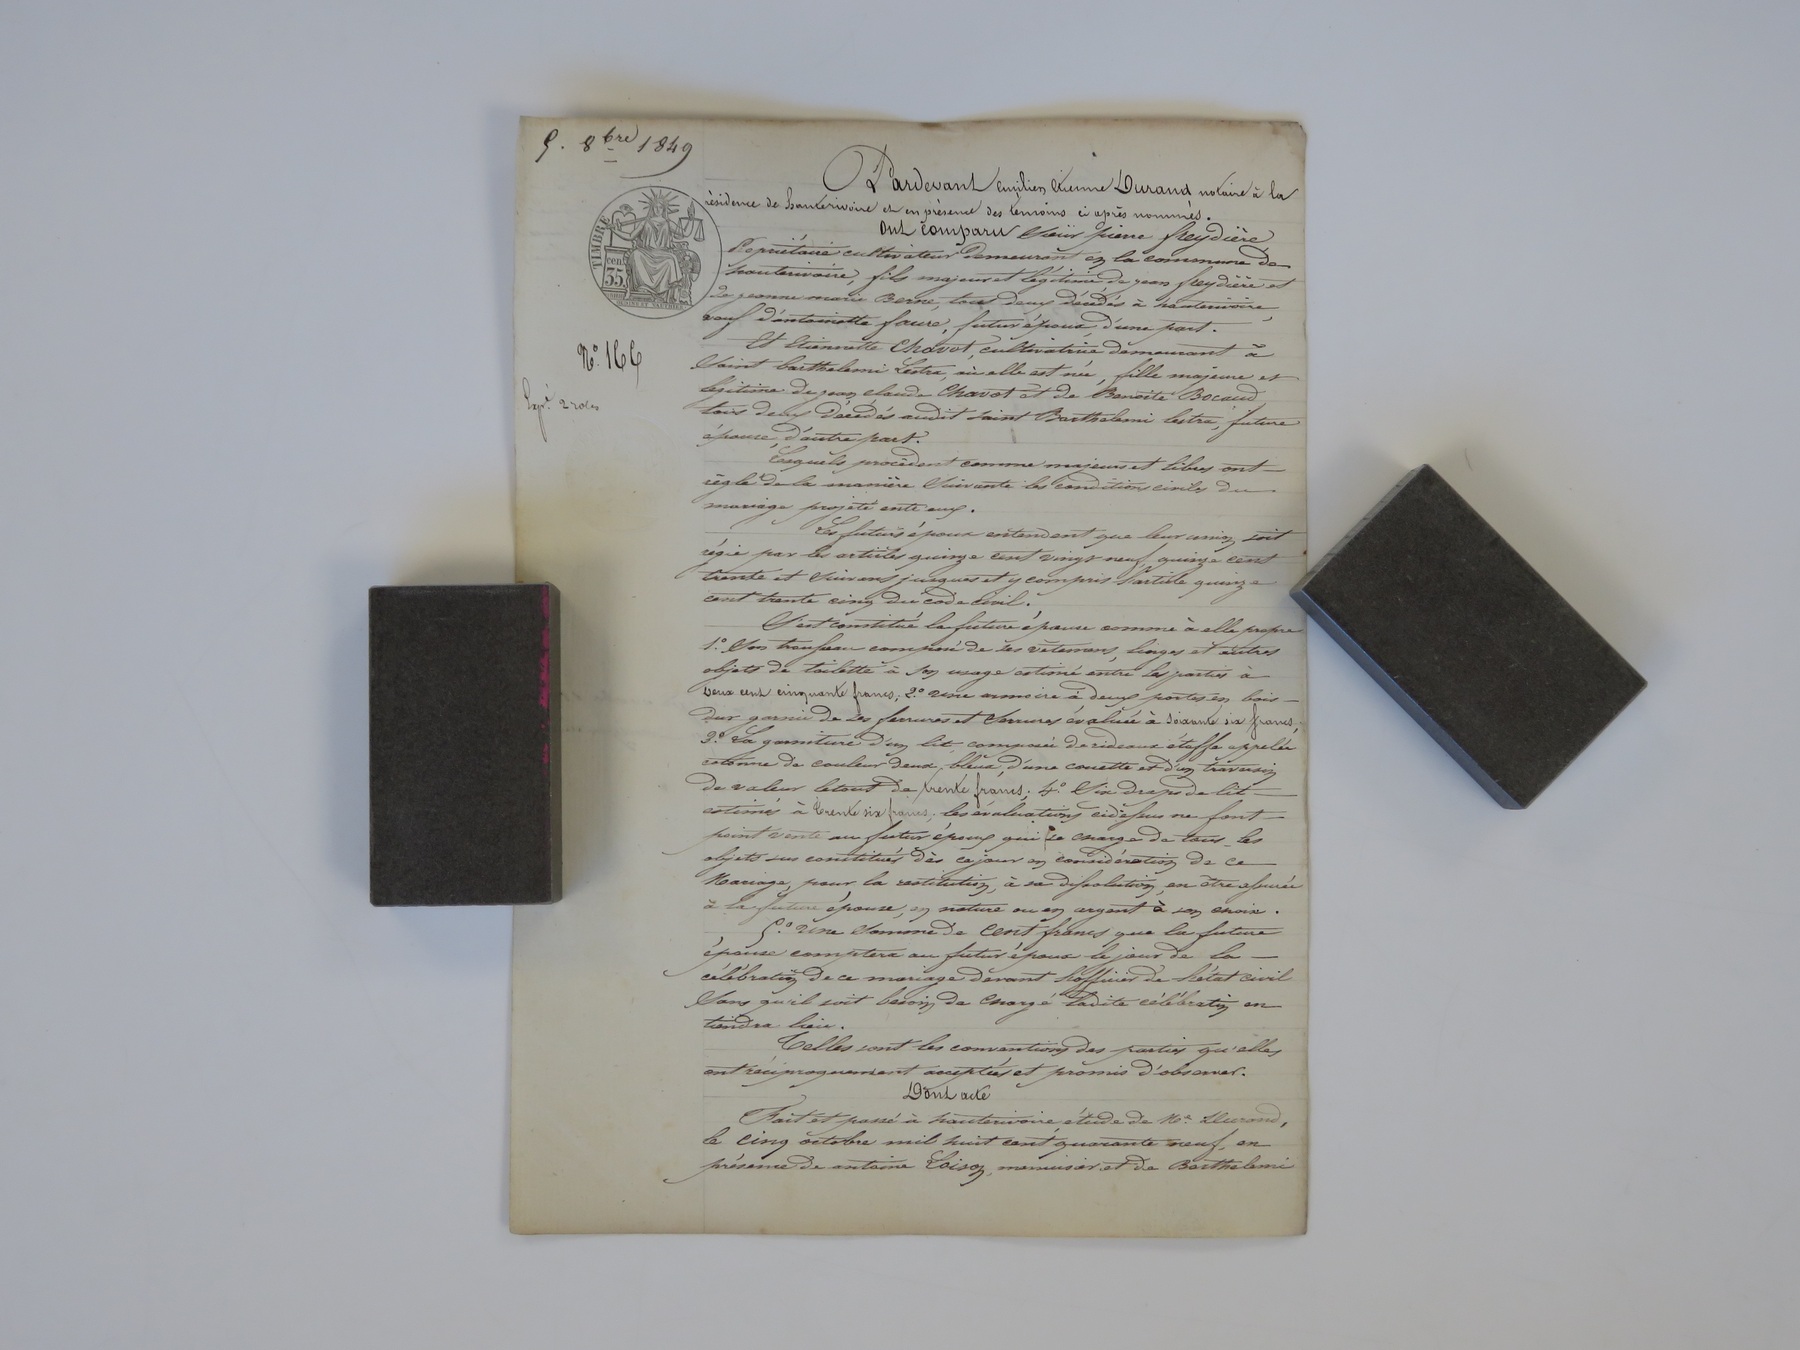 5. 8bre 1849
Pardevant Emilien Etienne Durand notaire à la
résidence de hauterivoire et en présence des témoins ci après nommés.
Ont comparu Sieur pierre freydière,
Propriétaire cultivateur demeurant en la commune de
hauterivoire, fils majeur et légitime de jean freydière et
de jeanne marie Berne, tous deux décédés à hauterivoire,
veuf d'antoinette faure, futur époux, d'une part.
TIMBRE
cen. 35.
N° 166
Et Etiennette Chavot, cultivatrice demeurant à
Saint barthelemi Lestra, où elle est née, fille majeure et
légitime de jean claude Chavot et de Benoite Bocaud,
tous deux décédés audit saint Barthelemi lestra, future
épouse, d'autre part.
2 roles
Lesquels procédant comme majeurs et libres ont
réglé de la manière Suivante les conditions civiles du
mariage projeté entr eux.
Les futurs époux entendent que leur union soit
régie par les articles quinze cent vingt neuf, quinze cent
trente et suivans jusques et y compris l'article quinze
cent trente cinq du code civil.
S'est constitué la future épouse comme à elle propre
1.° Son trousseau composé de ses vêtemens, linges et autres
objets de toilette à son usage estimé entre les parties à
deux cent cinquante francs; 2.° une armoire à deux portes en bois
dur garnie de ses ferrures et serrures évaluée à soixante six francs;
3.° La garniture d'un lit composée de rideaux étoffe appelée
cotonne de couleur deux bleux, d'une couette et d'un traversin
de valeur le tout de trente francs; 4.° Six draps de lit
estimés à trente six francs; les évaluations cidessus ne font
point vente au futur époux qui se charge de tous les
objets sus constitués dès ce jour en considération de ce
Mariage, pour la restitution, à sa dissolution, en être assurée
à la future épouse, en nature ou en argent à son choix.
5.° Une somme de Cent francs que la future
épouse comptera au futur époux le jour de la
célébration de ce mariage devant l'officier de l'état civil
Sans qu'il soit besoin de charge ladite célébration en
tiendra lieu.
Telles sont les conventions des parties qu'elles
ont réciproquement acceptées et promis d'observer.
Dont acte
Fait et passé à hauterivoire, étude de Me Durand,
le cinq octobre mil huit cent quarante neuf, en
présence de antoine Loison, menuisier et de Barthelemi